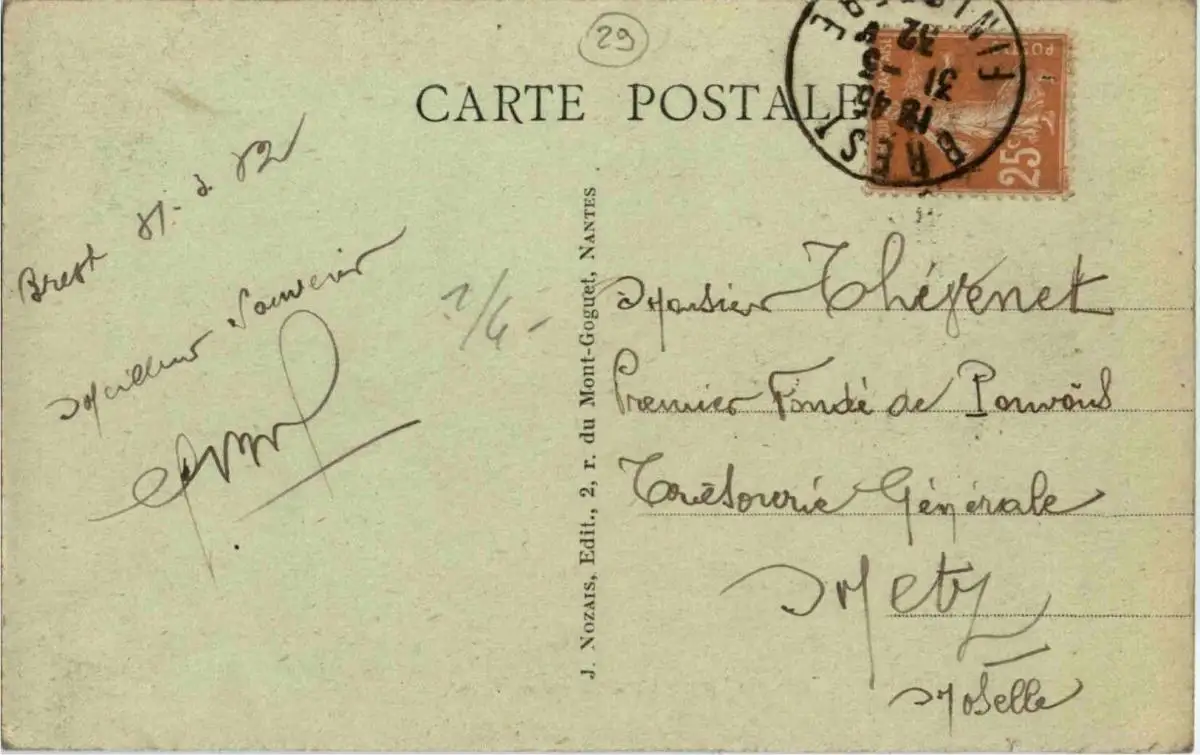 29
CARTE POSTALE
BREST
FINISTERE
18 45
31 -3
32
POSTES
25c
Brest 31-3 32
Meilleur Souvenir
J. NOZAIS, Edit., 2, r. du Mont-Goguet, NANTES
Monsieur Thévenet
Premier Fondé de Pouvoirs
Trésorerie Générale
Metz
Moselle